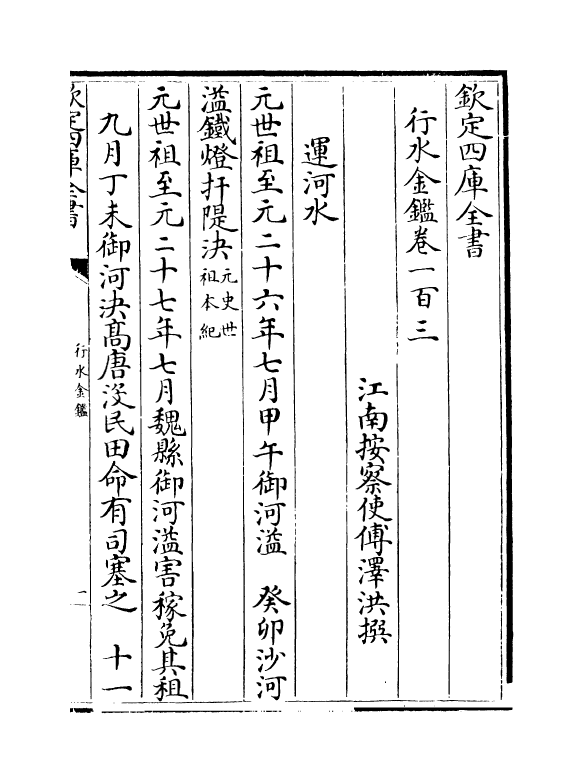 欽定四庫全書
行水金鑑卷一百三
江南按察使傅澤洪撰
運河水
元世祖至元二十六年七月甲午御河溢　癸卯沙河
溢鐵燈扞隄決元史世祖本紀
元世祖至元二十七年七月魏縣御河溢害稼免其租
九月丁未御河決高唐没民田命有司塞之　十一
欽定四庫全書
行水金鑑
一